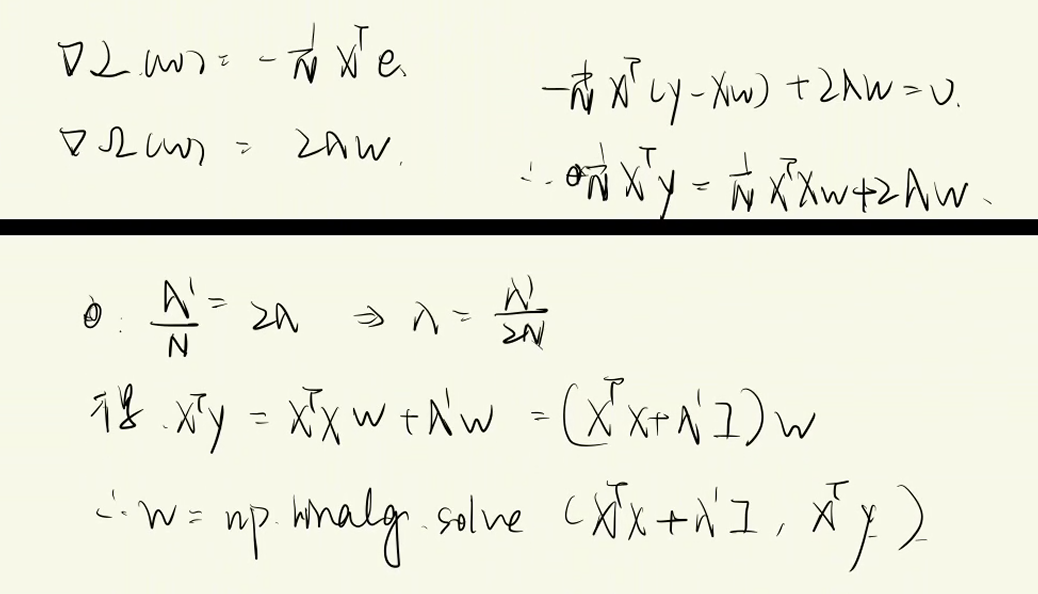 ∇L(w) = -1/N Xᵀe.
∇Ω(w) = 2λw.
-1/N Xᵀ(y-Xw) + 2λw = 0.
∴ 1/N Xᵀy = 1/N XᵀXw + 2λw.
λ'/N = 2λ ⇒ λ = λ'/2N
得. Xᵀy = XᵀXw + λ'w = (XᵀX + λ'I)w
∴ w = np.linalg.solve (XᵀX + λ'I, Xᵀy)